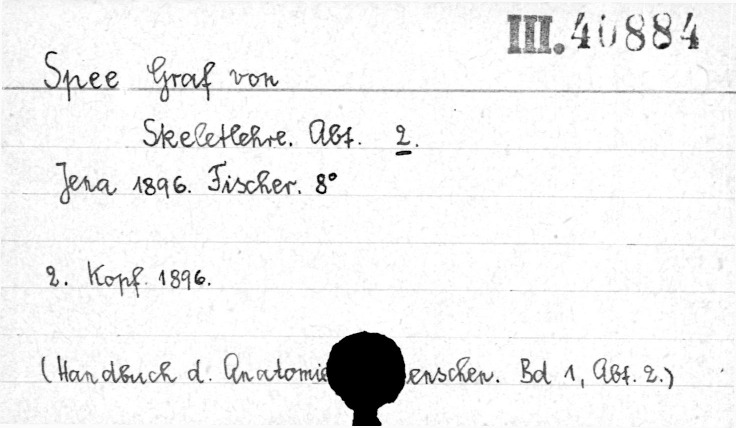 III. 40884
Spee Graf von
Skeletlehre. Abt. 2.
Jena 1896. Fischer. 8°
2. Kopf. 1896.
(Handbuch d. Anatomie enschen. Bd 1, Abt. 2.)